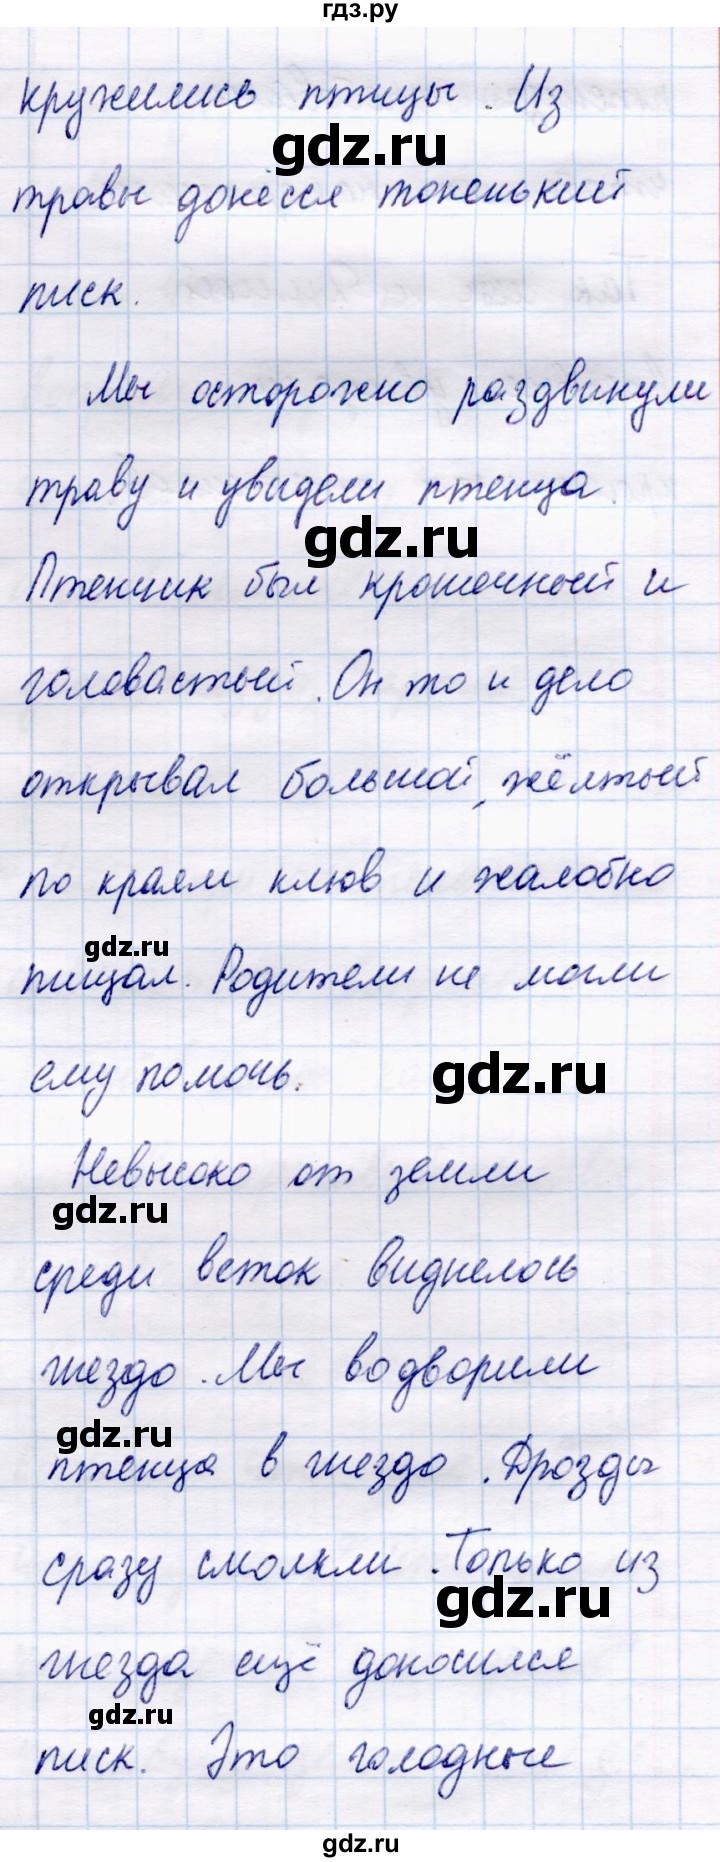 гдз.ру
кружились птицы. Из
gdz.ru
травы донёсся тоненький
писк.
Мы осторожно раздвинули
траву и увидели птенца.
gdz.ru
Птенчик был крошечный и
головастый. Он то и дело
открывал большой, жёлтый
по краям клюв и жалобно
gdz.ru
пищал. Родители не могли
ему помочь.
gdz.ru
Невысоко от земли
gdz.ru
среди веток виднелось
гнездо. Мы водворили
gdz.ru
птенца в гнездо. Дрозды
сразу смолкли. Только из
gdz.ru
гнезда ещё доносился
gdz.ru
писк. Это голодные
gdz.ru